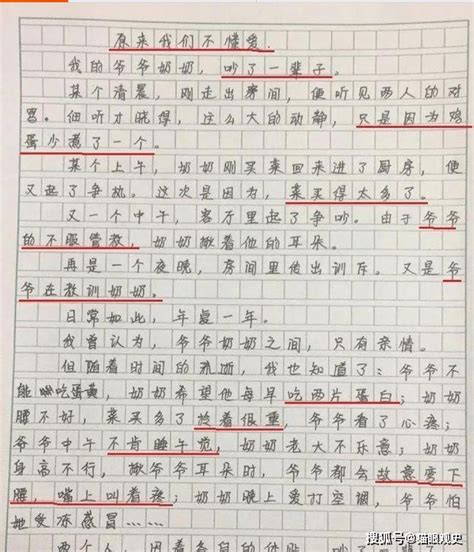 原来我们不懂爱
我的爷爷奶奶，吵了一辈子。
某个清晨，刚走出房间，便听见两人的对
骂。细听才晓得，这么大的动静，只是因为鸡
蛋少煮了一个。
某个上午，奶奶刚买菜回来进了厨房，便
又起了争执。这次是因为，菜买得太多了。
又一个中午，客厅里起了争吵。由于爷爷
的不服管教，奶奶揪着他的耳朵。
再是一个夜晚，房间里传出训斥。又是爷
爷在教训奶奶。
日常如此，年复一年。
我曾认为，爷爷奶奶之间，只有亲情。
但随着时间的流逝，我也知道了：爷爷不
能吃蛋黄，奶奶希望他每早吃两片蛋白；奶奶
腰不好，菜买多了拎着很重，爷爷看了心疼；
爷爷中午不肯睡午觉，奶奶老大不乐意；奶奶
身高不行，揪爷爷耳朵时，爷爷都会故意弯下
腰，嘴上叫着疼；奶奶晚上爱打空调，爷爷怕
她受冻感冒……
两个人
搜狐号@猫眼观史